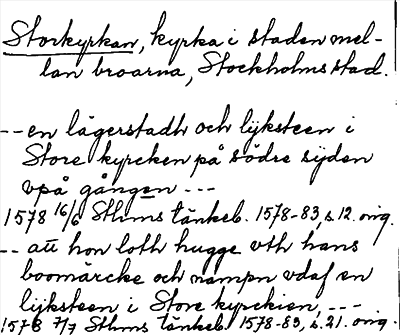 Storkyrkan, kyrka i staden mel-
lan broarna, Stockholms stad.
-- en lägerstadh och lijksteen i
Store kyrcken på södre sijden
vpå gången ---
1578 16/6 Sthms tänkeb. 1578-83, s. 12. orig.
-- att hon loth hugge vth hans
boomärcke och nampn vdaf en
lijksteen i Store kyrckien, ---
1578 7/7 Sthms tänkeb. 1578-83, s. 21. orig.